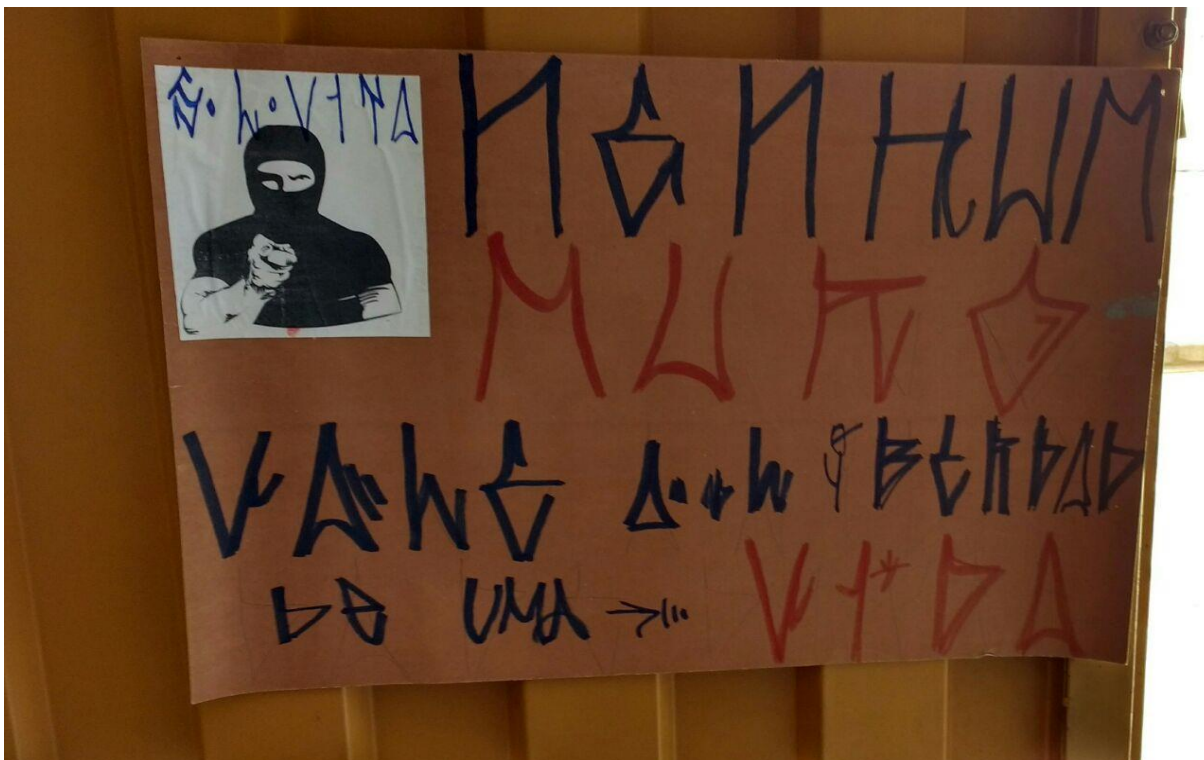 NENHUM
MURO
VALE A LIBERDAD
DE UMA VIDA